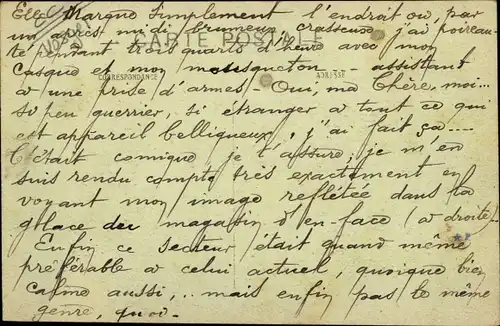 Elle Marque simplement l'endroit où, par
un après midi brumeux crasseux j'ai poireau-
CARTE POSTALE
té pendant trois quarts d'heure avec mon
casque et mon mousqueton -- assistant
CORRESPONDANCE
ADRESSE
à une prise d'armes - Oui, ma Chère, moi...
si peu guerrier, si étranger à tout ce qui
est appareil belliqueux, j'ai fait ça ----
C'était comique je t'assure, je m'en
suis rendu compte très exactement en
voyant mon image reflétée dans la
glace du magasin d'en-face (à droite)..
Enfin ce secteur était quand même
préférable à celui actuel, quoique bien
calme aussi, .. mais enfin pas le même
genre, quoi -